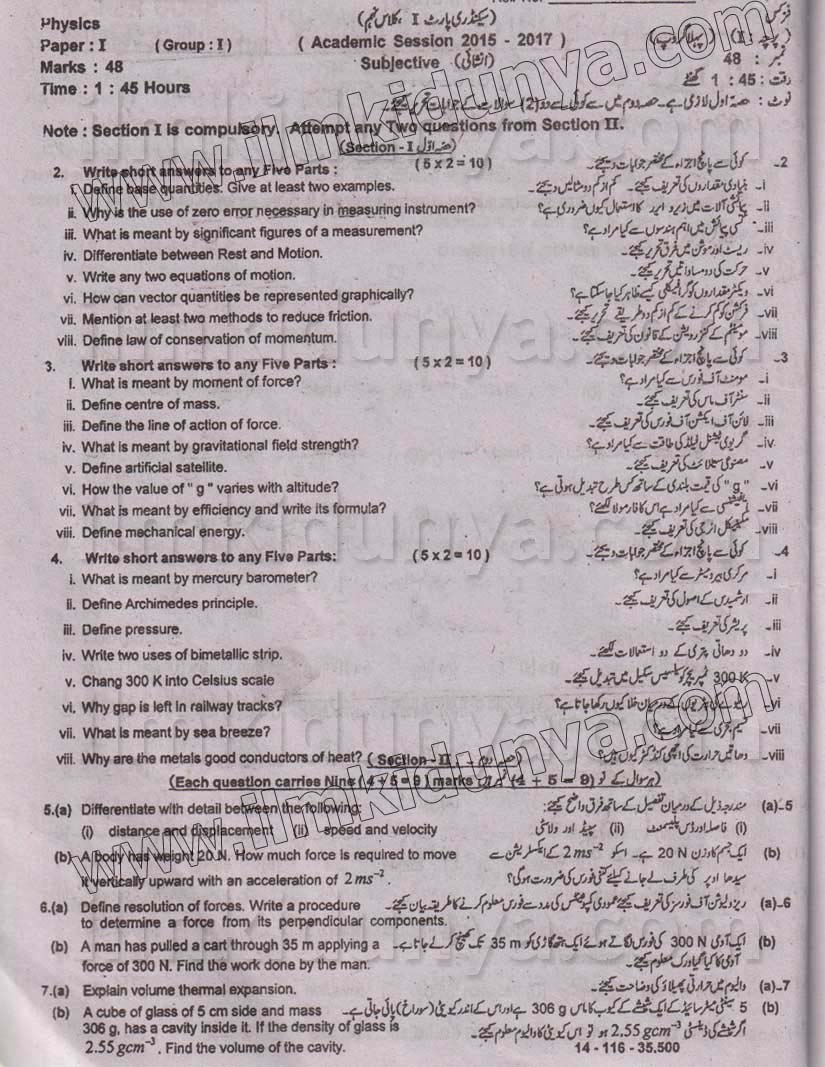 Physics (سیکنڈری پارٹ I، کلاس نہم) فزکس
Paper : I ( Group : I ) ( Academic Session 2015 - 2017 ) (پہلا گروپ) پرچہ : I
Marks : 48 Subjective (انشائی) نمبر : 48
Time : 1 : 45 Hours وقت : 1 : 45 گھنٹے
نوٹ : حصہ اول لازمی ہے۔ حصہ دوم میں سے کوئی سے دو (2) سوالات کے جوابات تحریر کیجئے۔
Note : Section I is compulsory. Attempt any Two questions from Section II.
(Section - I حصہ اول)
2. Write short answers to any Five Parts : ( 5 x 2 = 10 ) 2- کوئی سے پانچ اجزاء کے مختصر جوابات دیجئے۔
i. Define base quantities. Give at least two examples. i- بنیادی مقداروں کی تعریف کیجئے۔ کم از کم دو مثالیں دیجئے۔
ii. Why is the use of zero error necessary in measuring instrument? ii- پیمائشی آلات میں زیرو ایرر کا استعمال کیوں ضروری ہے؟
iii. What is meant by significant figures of a measurement? iii- کسی پیمائش میں اہم ہندسوں سے کیا مراد ہے؟
iv. Differentiate between Rest and Motion. iv- ریسٹ اور موشن میں فرق تحریر کیجئے۔
v. Write any two equations of motion. v- حرکت کی دو مساواتیں تحریر کیجئے۔
vi. How can vector quantities be represented graphically? vi- ویکٹر مقداروں کو گرافیکلی کیسے ظاہر کیا جا سکتا ہے؟
vii. Mention at least two methods to reduce friction. vii- فرکشن کو کم کرنے کے کم از کم دو طریقے تحریر کیجئے۔
viii. Define law of conservation of momentum. viii- مومینٹم کے کنزرویشن کے قانون کی تعریف کیجئے۔
3. Write short answers to any Five Parts : ( 5 x 2 = 10 ) 3- کوئی سے پانچ اجزاء کے مختصر جوابات دیجئے۔
i. What is meant by moment of force? i- مومنٹ آف فورس سے کیا مراد ہے؟
ii. Define centre of mass. ii- سنٹر آف ماس کی تعریف کیجئے۔
iii. Define the line of action of force. iii- لائن آف ایکشن آف فورس کی تعریف کیجئے۔
iv. What is meant by gravitational field strength? iv- گریوی ٹیشنل فیلڈ کی طاقت سے کیا مراد ہے؟
v. Define artificial satellite. v- مصنوعی سیٹلائٹ کی تعریف کیجئے۔
vi. How the value of " g " varies with altitude? vi- "g" کی قیمت بلندی کے ساتھ کس طرح تبدیل ہوتی ہے؟
vii. What is meant by efficiency and write its formula? vii- ایفی شنسی سے کیا مراد ہے اس کا فارمولا لکھئے؟
viii. Define mechanical energy. viii- مکینیکل انرجی کی تعریف کیجئے۔
4. Write short answers to any Five Parts: ( 5 x 2 = 10 ) 4- کوئی سے پانچ اجزاء کے مختصر جوابات دیجئے۔
i. What is meant by mercury barometer? i- مرکری بیرومیٹر سے کیا مراد ہے؟
ii. Define Archimedes principle. ii- ارشمیدس کے اصول کی تعریف کیجئے۔
iii. Define pressure. iii- پریشر کی تعریف کیجئے۔
iv. Write two uses of bimetallic strip. iv- دو دھاتی پتری کے دو استعمالات لکھئے۔
v. Chang 300 K into Celsius scale v- 300 K ٹمپریچر کو سیلسیس سکیل میں تبدیل کیجئے۔
vi. Why gap is left in railway tracks? vi- کے درمیان خلا کیوں رکھا جاتا ہے؟
vii. What is meant by sea breeze? vii- نسیم بحری سے کیا مراد ہے؟
viii. Why are the metals good conductors of heat? viii- دھاتیں حرارت کی اچھی کنڈکٹر کیوں ہیں؟
(Section - II حصہ دوم)
(Each question carries Nine ( 4 + 5 = 9 ) marks ہر سوال کے نو (4 + 5 = 9) نمبر ہیں)
5.(a) Differentiate with detail between the following: 5-(a) مندرجہ ذیل کے درمیان تفصیل کے ساتھ فرق واضح کیجئے:
(i) distance and displacement (ii) speed and velocity (i) فاصلہ اور ڈس پلیسمنٹ (ii) سپیڈ اور ولاسٹی
(b) A body has weight 20 N. How much force is required to move (b) ایک جسم کا وزن 20 N ہے۔ اسکو 2ms⁻² کے ایکسلریشن سے
it vertically upward with an acceleration of 2ms⁻². سیدھا اوپر کی طرف لے جانے کیلئے کتنی فورس کی ضرورت ہوگی؟
6.(a) Define resolution of forces. Write a procedure 6-(a) ریزولیوشن آف فورسز کی تعریف کیجئے عمودی کمپونینٹس کی مدد سے فورس معلوم کرنے کا طریقہ بیان کیجئے۔
to determine a force from its perpendicular components.
(b) A man has pulled a cart through 35 m applying a (b) ایک آدمی 300 N کی فورس لگاتے ہوئے ایک ہتھ گاڑی کو 35 m تک کھینچ کر لے جاتا ہے۔
force of 300 N. Find the work done by the man. آدمی کا کیا گیا ورک معلوم کیجئے۔
7.(a) Explain volume thermal expansion. 7-(a) والیوم میں حرارتی پھیلاؤ کی وضاحت کیجئے۔
(b) A cube of glass of 5 cm side and mass (b) 5 سینٹی میٹر سائیڈ کے ایک شیشے کے کیوب کا ماس 306 g ہے اور اس کے اندر کیویٹی (سوراخ) پائی جاتی ہے۔
306 g, has a cavity inside it. If the density of glass is اگر شیشے کی ڈینسٹی 2.55 gcm⁻³ ہو تو اس کیویٹی کا والیوم معلوم کیجئے۔
2.55 gcm⁻³. Find the volume of the cavity. 14 - 116 - 35,500
www.ilmkidunya.com
www.ilmkidunya.com